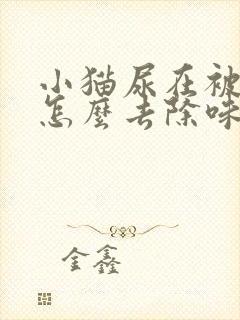 小猫尿在被
怎麼去除味
金鑫